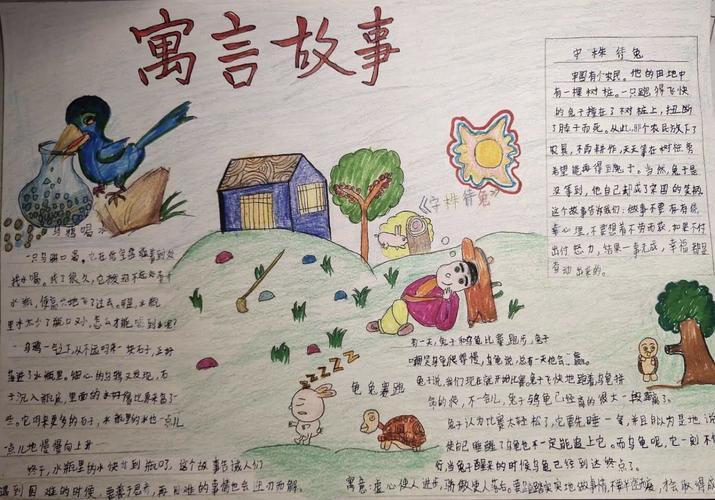 寓言故事
守株待兔
中国有个农民。他的田地中
有一棵树桩。一只跑得飞快
的兔子撞在了树桩上，扭断
了脖子而死。从此，那个农民放下了
农具，不再耕作，天天守在树桩旁
希望能再得到兔子。当然，兔子是
没等到，他自己却成了宋国的笑柄
这个故事告诉我们：做事不要存有侥
幸心理，不要想着不劳而获，如果不付
出努力，结果一事无成，幸福都是
劳动出来的。
《守株待兔》
乌鸦喝水
一只乌鸦口渴，它在
找水喝。找了很久，它
水瓶，
里水太少了瓶口又小，怎么才能喝到水呢？
乌鸦
落进了水瓶里。细心的乌鸦又发现，石
子沉入瓶底，里面的水好像比原来高了一
些。它叼来更多的石子，水瓶里的水也一点儿
一点儿地慢慢向上升
终于，水瓶里的水快升到瓶口了，这个故事告诉人们
遇到困难的时候，要善于思考，再困难的事情也会迎刃而解。
ZZZZZ
龟兔赛跑
有一天，兔子和乌龟比赛跑步，兔子
嘲笑乌龟爬得慢，乌龟说，总有一天他会赢。
兔子说，我们现在就开始比赛。兔子飞快地跑着，乌龟拼
命的爬，不一会儿，兔子与乌龟已经离的很大一段距离了。
兔子认为比赛太轻松了，它要先睡一会，并且自以为是地说
使自己睡醒了乌龟也不一定能追上它。而乌龟呢，它一刻不停
行，当兔子醒来的时候乌龟已经到达终点了。
寓意：虚心使人进步，骄傲使人落后。要踏踏实实地做事情，不要半途而废，才会取得成